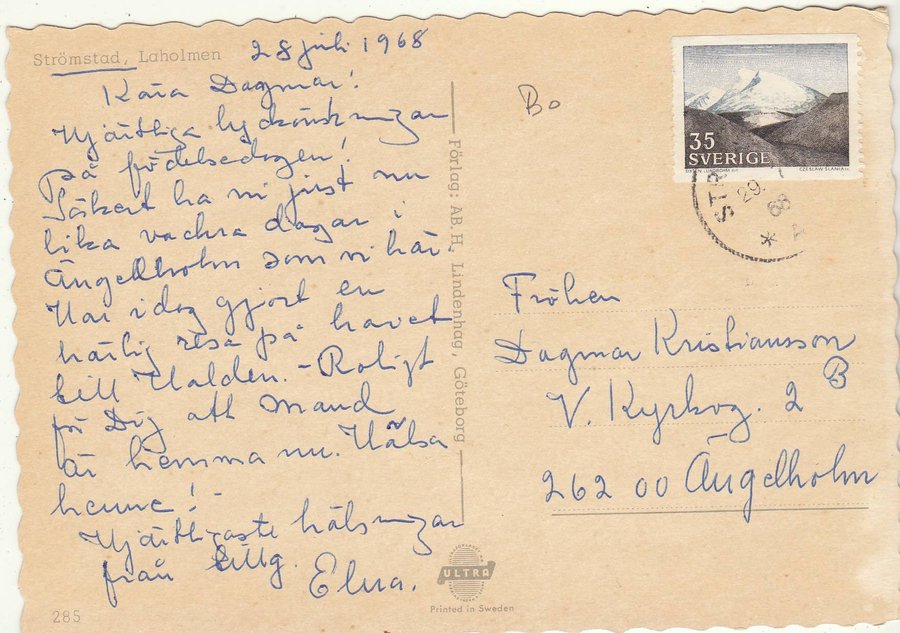 Strömstad, Laholmen
28 juli 1968
Kära Dagmar!
Hjärtliga lyckönskningar
på födelsedagen!
Säkert ha ni just nu
lika vackra dagar i
Ängelholm som vi här.
Har idag gjort en
härlig resa på havet
till Halden. - Roligt
för Dig att Maud
är hemma nu. Hälsa
henne! -
Hjärtligaste hälsningar
från
Elna.
285
Förlag: AB.H. Lindenhag, Göteborg
Bo
35
SVERIGE
CZESLAW SLANIA SC.
STR
29.
68
Fröken
Dagmar Kristiansson
V. Kyrkog. 2 B
262 00 Ängelholm
ULTRA
Printed in Sweden